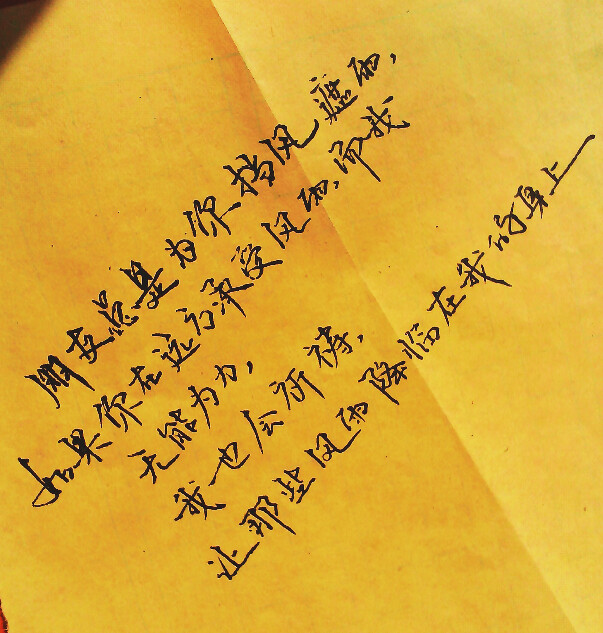 朋友总是为你挡风遮雨，
如果你在远方承受风雨，而我
无能为力，
我也会祈祷，
让那些风雨降临在我的身上